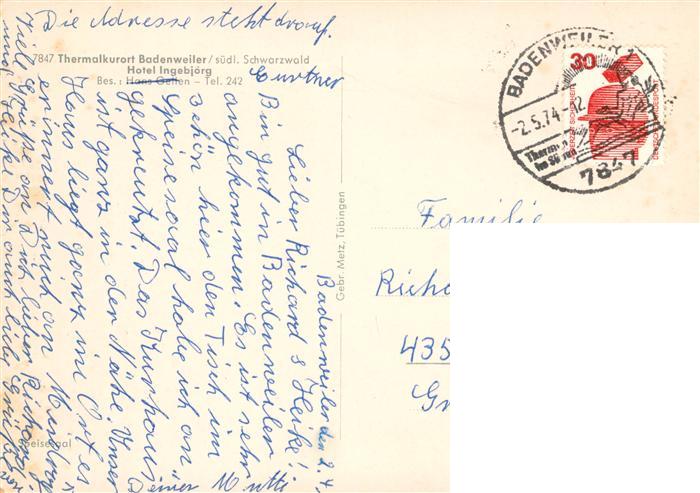 Die Adresse steht drauf.
7847 Thermalkurort Badenweiler / südl. Schwarzwald
Hotel Ingebjörg
Bes.: Hans Gehen - Tel. 242
Curtner
Badenweiler den 2.4.
Lieber Richard & Heike!
Bin gut in Badenweiler
angekommen. Es ist sehr
schön hier den Tisch im
Speisesaal habe ich an
geknutzt. Das Kurhaus
ist ganz in der Nähe. Unser
Haus liegt ganz im Ort es
erinnert mich an
Viele Grüße an Dich lieber Richard
und Heike Dir auch liebe Grüße
einer Mutti
Speisesaal
Gebr. Metz, Tübingen
BADENWEILER 1
-2.5.74-12
7847
30
DEUTSCHE BUNDESPOST
Familie
Richa
435
Gr